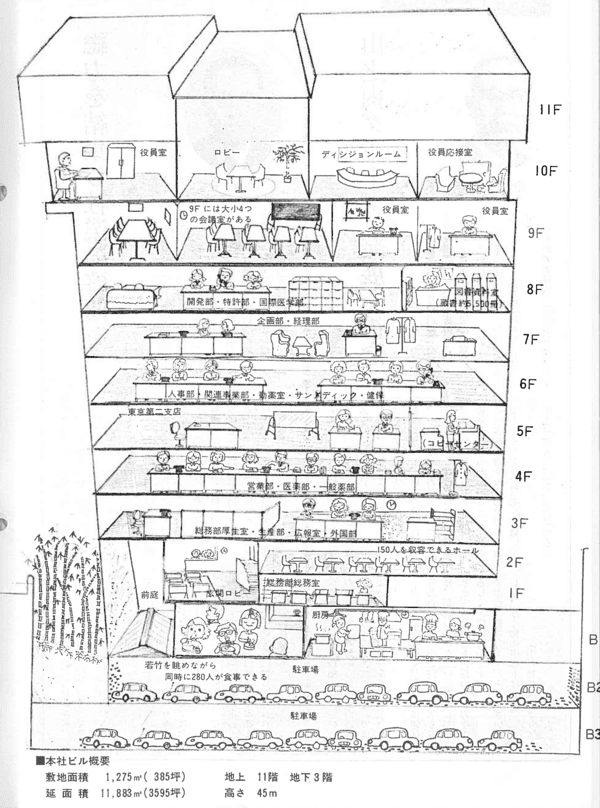 11F
役員室
ロビー
ディシジョンルーム
役員応接室
10F
9Fには大小4つ
の会議室がある
役員室
役員室
9F
開発部・特許部・国際医学部
図書資料室
(蔵書約5,500冊)
8F
企画部・経理部
7F
人事部・関連事業部・動薬室・サンメディック・健保
6F
東京第二支店
(コピーセンター)
5F
営業部・医薬部・一般薬部
4F
総務部厚生室・生産部・広報室・外国部
3F
150人を収容できるホール
2F
前庭
玄関ロビー
総務部総務室
1F
厨房
B
若竹を眺めながら
同時に280人が食事できる
駐車場
B2
駐車場
B3
■本社ビル概要
敷地面積 1,275㎡(385坪) 地上 11階 地下3階
延面積 11,883㎡(3595坪) 高さ 45m